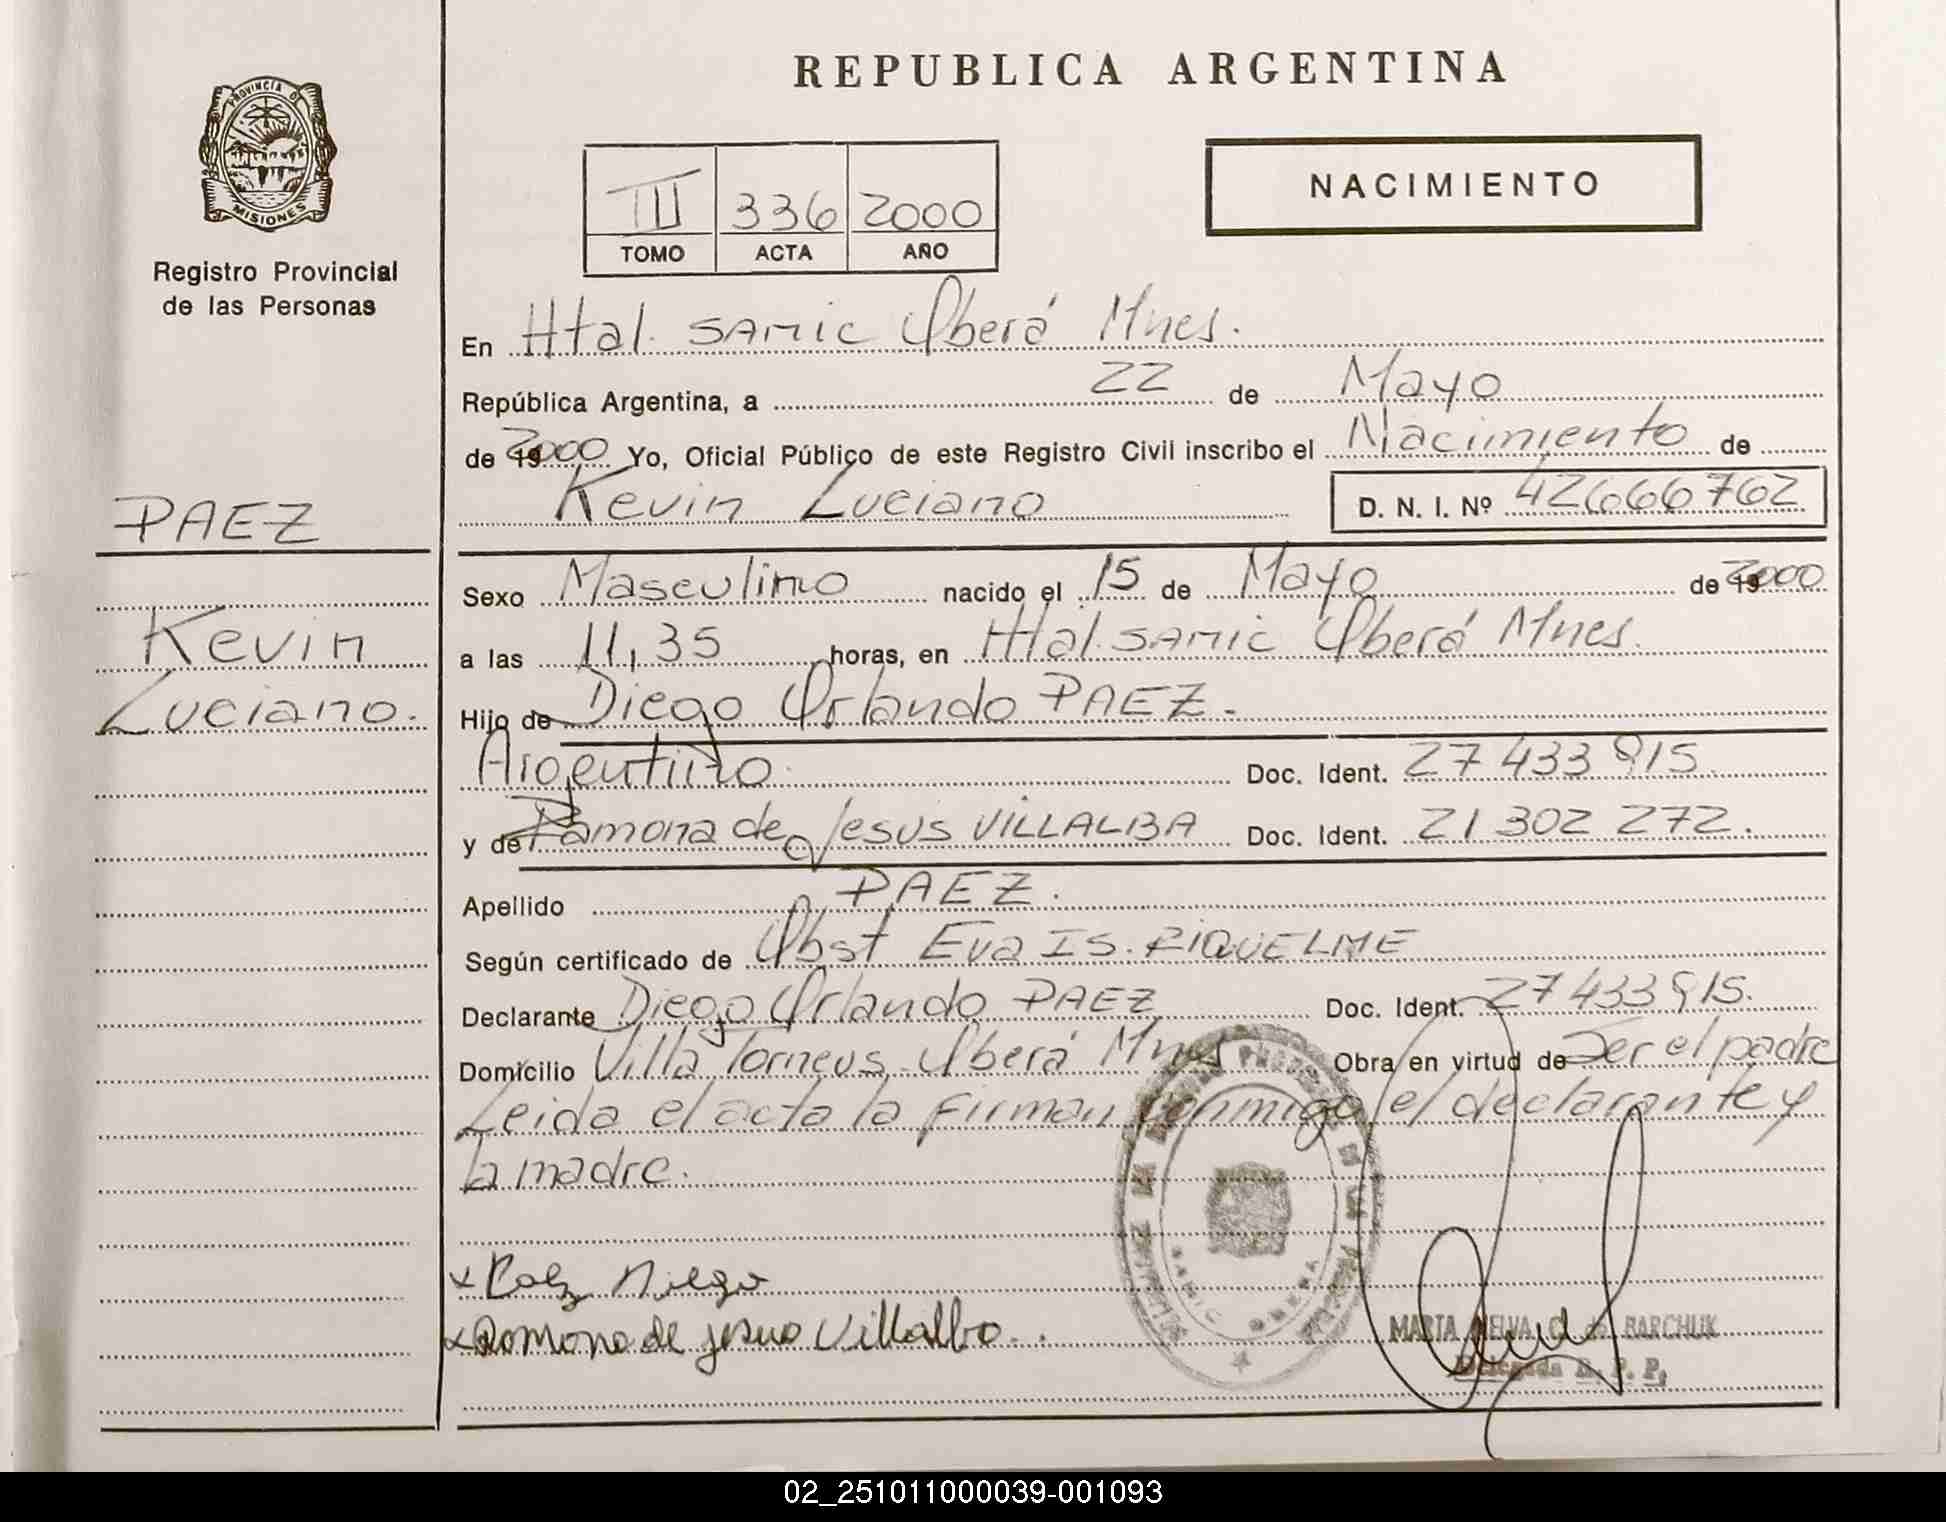 REPUBLICA ARGENTINA
PROVINCIA DE
MISIONES
Registro Provincial
de las Personas
III 336 2000
TOMO ACTA AÑO
NACIMIENTO
En Htal. SAMIC Oberá Mnes.
República Argentina, a 22 de Mayo
de 2000 Yo, Oficial Público de este Registro Civil inscribo el Nacimiento de
Kevin Luciano D. N. I. Nº 42666762
PAEZ
Kevin
Luciano.
Sexo Masculino nacido el 15 de Mayo de 2000
a las 11,35 horas, en Htal. SAMIC Oberá Mnes.
Hijo de Diego Orlando PAEZ.
Argentino. Doc. Ident. 27 433 915.
y de Ramona de Jesus VILLALBA Doc. Ident. 21 302 272.
Apellido PAEZ.
Según certificado de Obst Eva IS. RIQUELME
Declarante Diego Orlando PAEZ Doc. Ident. 27 433 915.
Domicilio Villa Torneus Oberá Mnes Obra en virtud de Ser el padre
Leida el acta la firman conmigo el declarante y
la madre.
x Paez Diego
x Ramona de jesus Villalba.
SAMIC OBERA
MARTA C. de BARCHUK
Delegada R. P. P.
02_251011000039-001093